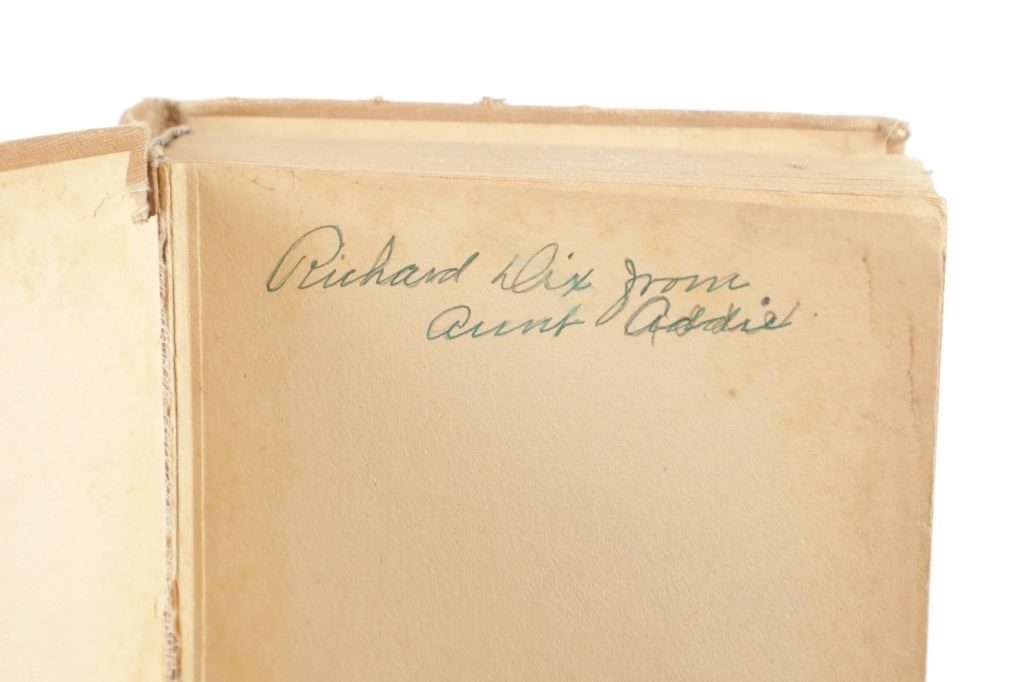 Richard Dix from
Aunt Addie